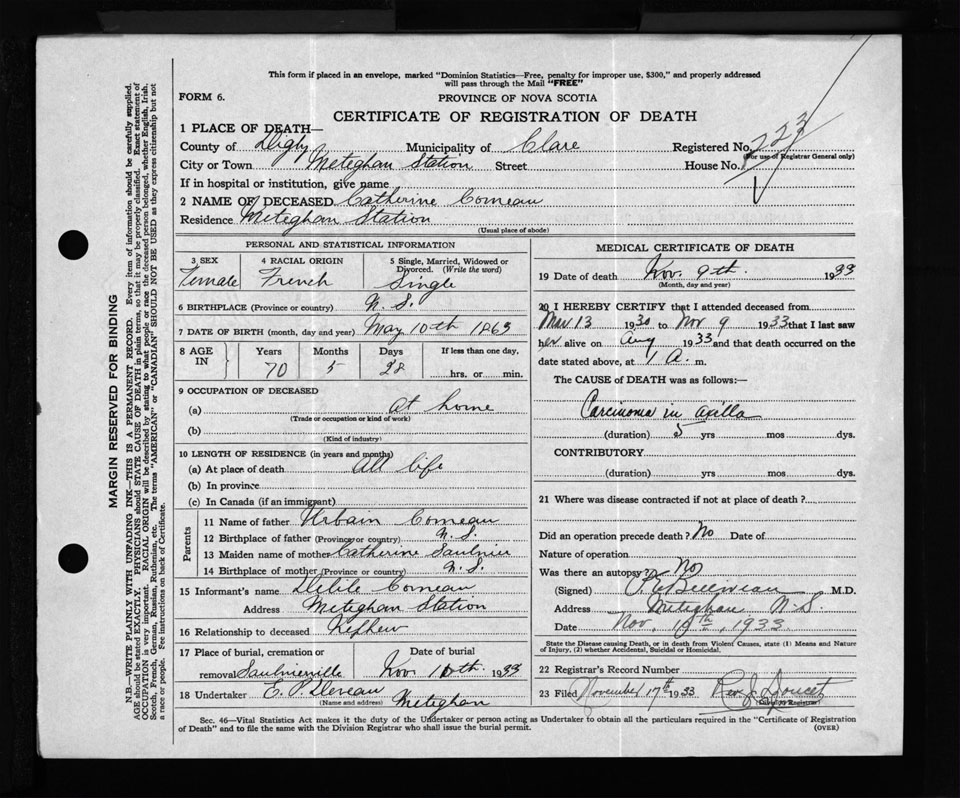 This form if placed in an envelope, marked "Dominion Statistics—Free, penalty for improper use, $300," and properly addressed
will pass through the Mail "FREE"
FORM 6.
PROVINCE OF NOVA SCOTIA
CERTIFICATE OF REGISTRATION OF DEATH
1 PLACE OF DEATH—
County of Digby Municipality of Clare Registered No. 223
(For use of Registrar General only)
City or Town Meteghan Station Street House No.
If in hospital or institution, give name
2 NAME OF DECEASED Catherine Comeau
Residence Meteghan Station
(Usual place of abode)
PERSONAL AND STATISTICAL INFORMATION
3 SEX 4 RACIAL ORIGIN 5 Single, Married, Widowed or Divorced. (Write the word)
Female French Single
6 BIRTHPLACE (Province or Country) N. S.
7 DATE OF BIRTH (month, day and year) May 10th 1863
8 AGE IN Years Months Days If less than one day,
70 5 28 hrs. or min.
9 OCCUPATION OF DECEASED
(a) At home
(Trade or occupation or kind of work)
(b)
(Kind of industry)
10 LENGTH OF RESIDENCE (in years and months)
(a) At place of death All life
(b) In province
(c) In Canada (if an immigrant)
Parents
11 Name of father Urbain Comeau
12 Birthplace of father (Province or country) N. S.
13 Maiden name of mother Catherine Saulnier
14 Birthplace of mother (Province or country) N. S.
15 Informant's name Comeau
Address Meteghan Station
16 Relationship to deceased Nephew
17 Place of burial, cremation or Date of burial
removal Saulnierville Nov. 10th. 1933
18 Undertaker E. P. Deveau Meteghan
(Name and address)
MEDICAL CERTIFICATE OF DEATH
19 Date of death Nov. 9th. 1933
(Month, day and year)
20 I HEREBY CERTIFY that I attended deceased from
Mar 13 1930 to Nov 9 1933 that I last saw
her alive on Aug 1933 and that death occurred on the
date stated above, at 1 A. m.
The CAUSE OF DEATH was as follows:—
Carcinoma in axilla
(duration) 5 yrs mos dys.
CONTRIBUTORY
(duration) yrs mos dys.
21 Where was disease contracted if not at place of death?
Did an operation precede death? No Date of
Nature of operation
Was there an autopsy? No
(Signed) Belliveau M.D.
Address Meteghan N.S.
Date Nov. 10th, 1933
State the Disease causing Death, or in death from Violent Causes, state (1) Means and Nature
of Injury, (2) whether Accidental, Suicidal or Homicidal.
22 Registrar's Record Number
23 Filed November 17th 1933 Rev. J. Doucet
(Division Registrar)
Sec. 46—Vital Statistics Act makes it the duty of the Undertaker or person acting as Undertaker to obtain all the particulars required in the "Certificate of Registration
of Death" and to file the same with the Division Registrar who shall issue the burial permit. (OVER)
MARGIN RESERVED FOR BINDING
N.B.—WRITE PLAINLY WITH UNFADING INK—THIS IS A PERMANENT RECORD. Every item of information should be carefully supplied.
AGE should be stated EXACTLY. PHYSICIANS should STATE CAUSE OF DEATH in plain terms, so that it may be properly classified. Exact statement of
OCCUPATION is very important. RACIAL ORIGIN will be described by stating to what people or race the deceased person belonged, whether English, Irish,
Scotch, French, German, Russian, Ruthenian, etc. The terms "AMERICAN" or "CANADIAN" SHOULD NOT BE USED as they express citizenship but not
a race or people. See instructions on back of Certificate.